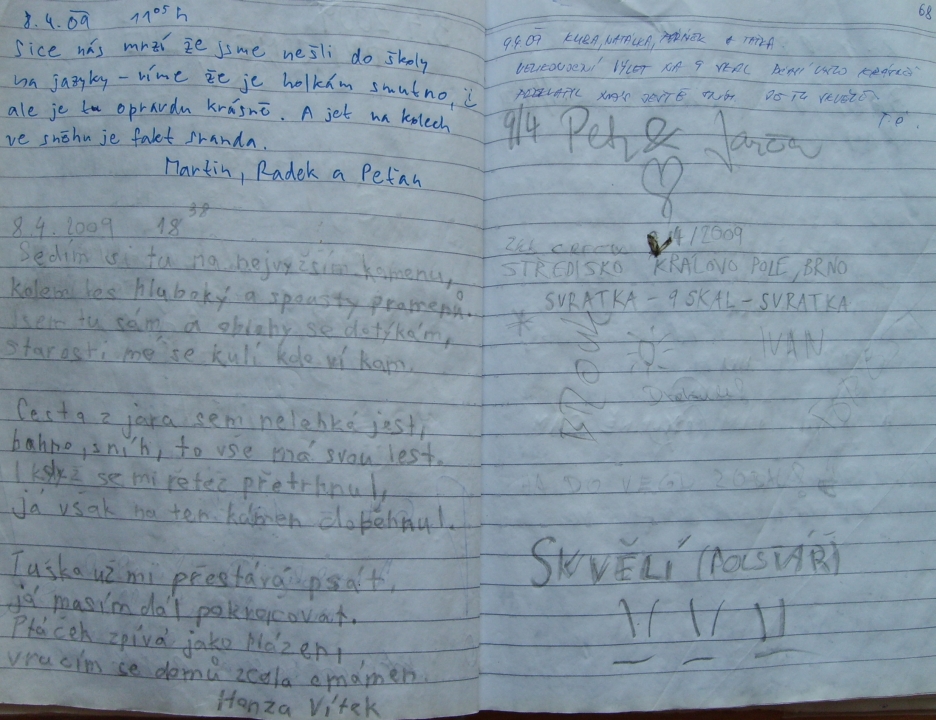 8.4.09 11⁰⁵ h
Sice nás mrzí že jsme nešli do školy
na jazyky – víme že je holkám smutno,
ale je tu opravdu krásně. A jet na kolech
ve sněhu je fakt sranda.
Martin, Radek a Peťan
8.4.2009 18³⁸
Sedím si tu na nejvyšším kamenu,
kolem les hluboký a spousty pramenů.
Jsem tu sám a oblohy se dotýkám,
starosti mé se kulí kdo ví kam.
Cesta z jara sem nelehká jest,
bahno, sníh, to vše má svou lest.
I když se mi řetěz přetrhnul,
já však na ten kámen doběhnul.
Tužka už mi přestává psát,
já musím dál pokračovat.
Ptáček zpívá jako blázen,
vracím se domů zcela omámen.
Honza Vítek
68
9.4.09 KUBA, NATÁLKA, A TAŤKA
VELIKONOČNÍ VÝLET NA 9 SKAL
T.P.
9/4 Petr & Jarča
4/2009
STŘEDISKO KRÁLOVO POLE, BRNO
SVRATKA – 9 SKAL – SVRATKA
IVAN
SKVĚLÍ (POLŠTÁŘ)